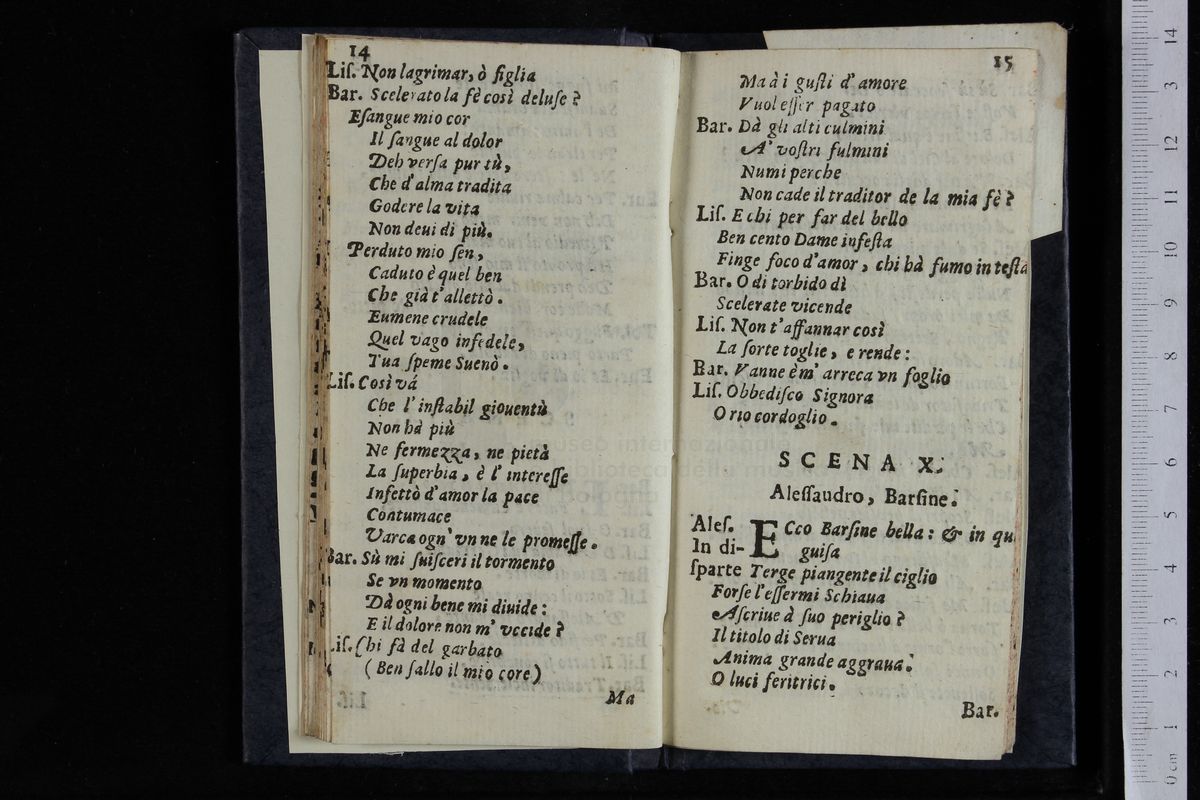 14
Liſ. Non lagrimar, ò figlia
Bar. Scelerato la fè così deluſe?
Eſangue mio cor
Il ſangue al dolor
Deh verſa pur tù,
Che d'alma tradita
Godere la vita
Non deui di più.
Perduto mio ſen,
Caduto è quel ben
Che già t'allettò.
Eumene crudele
Quel vago infedele,
Tua ſpeme Suenò.
Liſ. Così vá
Che l'inſtabil giouentù
Non hà più
Ne fermezza, ne pietà
La ſuperbia, è l'intereſſe
Infettò d'amor la pace
Contumace
Varca ogn'vn ne le promeſſe.
Bar. Sù mi ſuiſceri il tormento
Se vn momento
Dà ogni bene mi diuide:
E il dolore non m'vccide?
Liſ. Chi fà del garbato
(Ben ſallo il mio core)
Ma
15
Ma à i guſti d'amore
Vuol eſſer pagato
Bar. Dà gli alti culmini
A' voſtri fulmini
Numi perche
Non cade il traditor de la mia fè?
Liſ. E chi per far del bello
Ben cento Dame infeſta
Finge foco d'amor, chi hà fumo in teſta
Bar. O di torbido dì
Scelerate vicende
Liſ. Non t'affannar così
La ſorte toglie, e rende:
Bar. Vanne è m'arreca vn foglio
Liſ. Obbediſco Signora
O rio cordoglio.
SCENA X.
Aleſſandro, Barſine.
Aleſ. ECco Barſine bella: & in
In di- guiſa
ſparte Terge piangente il ciglio
Forſe l'eſſermi Schiaua
Aſcriue à ſuo periglio?
Il titolo di Serua
Anima grande aggraua.
O luci feritrici.
Bar.
museo internazionale
biblioteca della musica
bologna
0 cm 1 2 3 4 5 6 7 8 9 10 11 12 3 14